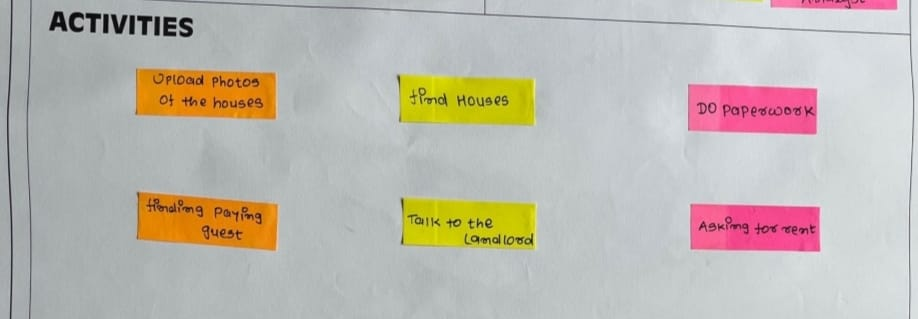 ACTIVITIES
Upload Photos
Of the houses
find Houses
DO paperwork
finding Paying
guest
Talk to the
Landlord
Asking for rent